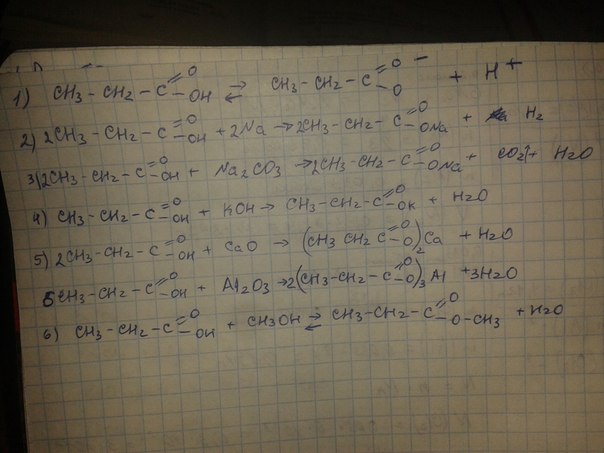 1) CH3-CH2-C=O-OH ⇌ CH3-CH2-C=O-O⁻ + H⁺
2) 2CH3-CH2-C=O-OH + 2Na → 2CH3-CH2-C=O-ONa + H2
3) 2CH3-CH2-C=O-OH + Na2CO3 → 2CH3-CH2-C=O-ONa + CO2↑ + H2O
4) CH3-CH2-C=O-OH + KOH → CH3-CH2-C=O-OK + H2O
5) 2CH3-CH2-C=O-OH + CaO → (CH3 CH2 C=O-O)2Ca + H2O
6CH3-CH2-C=O-OH + Al2O3 → 2(CH3-CH2-C=O-O)3Al + 3H2O
6) CH3-CH2-C=O-OH + CH3OH ⇌ CH3-CH2-C=O-O-CH3 + H2O